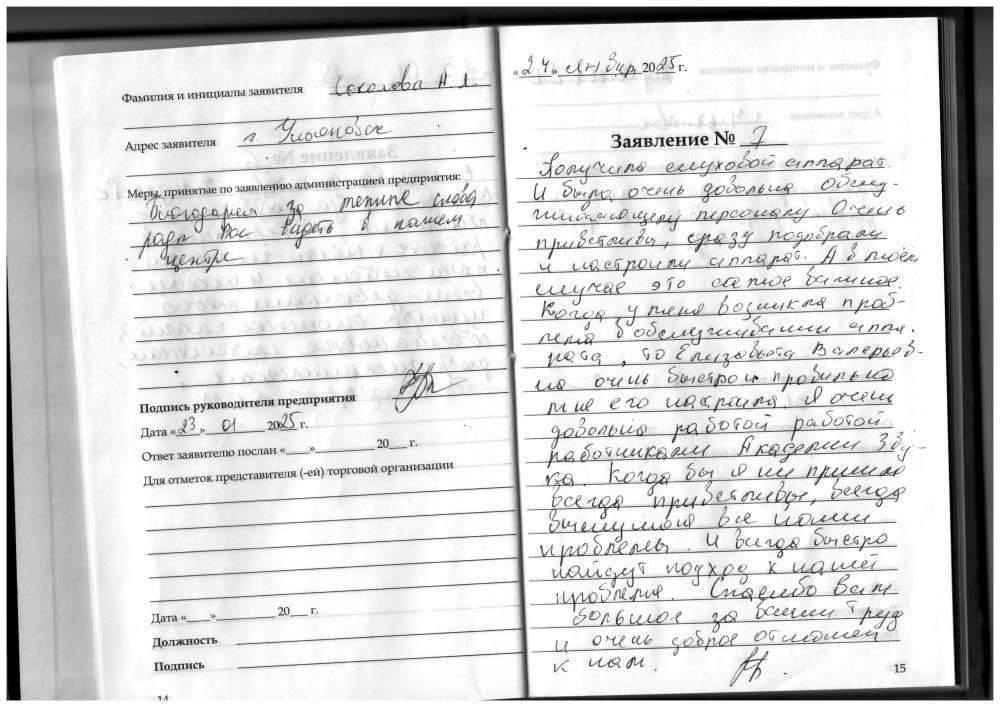 Фамилия и инициалы заявителя Соколова А.А.
Адрес заявителя г. Ульяновск
Меры, принятые по заявлению администрацией предприятия:
Благодарим за теплые слова
рады Вас видеть в нашем
центре
Подпись руководителя предприятия
Дата «23» 01 2025 г.
Ответ заявителю послан «___» ________ 20___ г.
Для отметок представителя (-ей) торговой организации
Дата «___» ________ 20___ г.
Должность
Подпись
14
«24» Январ 2025 г.
Заявление № 7
Получила слуховой аппарат.
И была очень довольна обслу-
живающему персоналу. Очень
приветливы, сразу подобрали
и настроили аппарат. А в моём
случае это самое важное.
Когда у меня возникла проб-
лема в обслуживании аппа-
рата, то Елизавета Валерьев-
на очень быстро и правильно
мне его настроила. Я очень
довольна работой работой
работниками Академии Зву-
ка. Когда бы я ни пришла
всегда приветливы, всегда
выслушая все наши
проблемы. И всегда быстро
найдут подход к нашей
проблеме. Спасибо вам
большое за ваш труд
и очень доброе
к нам.
15